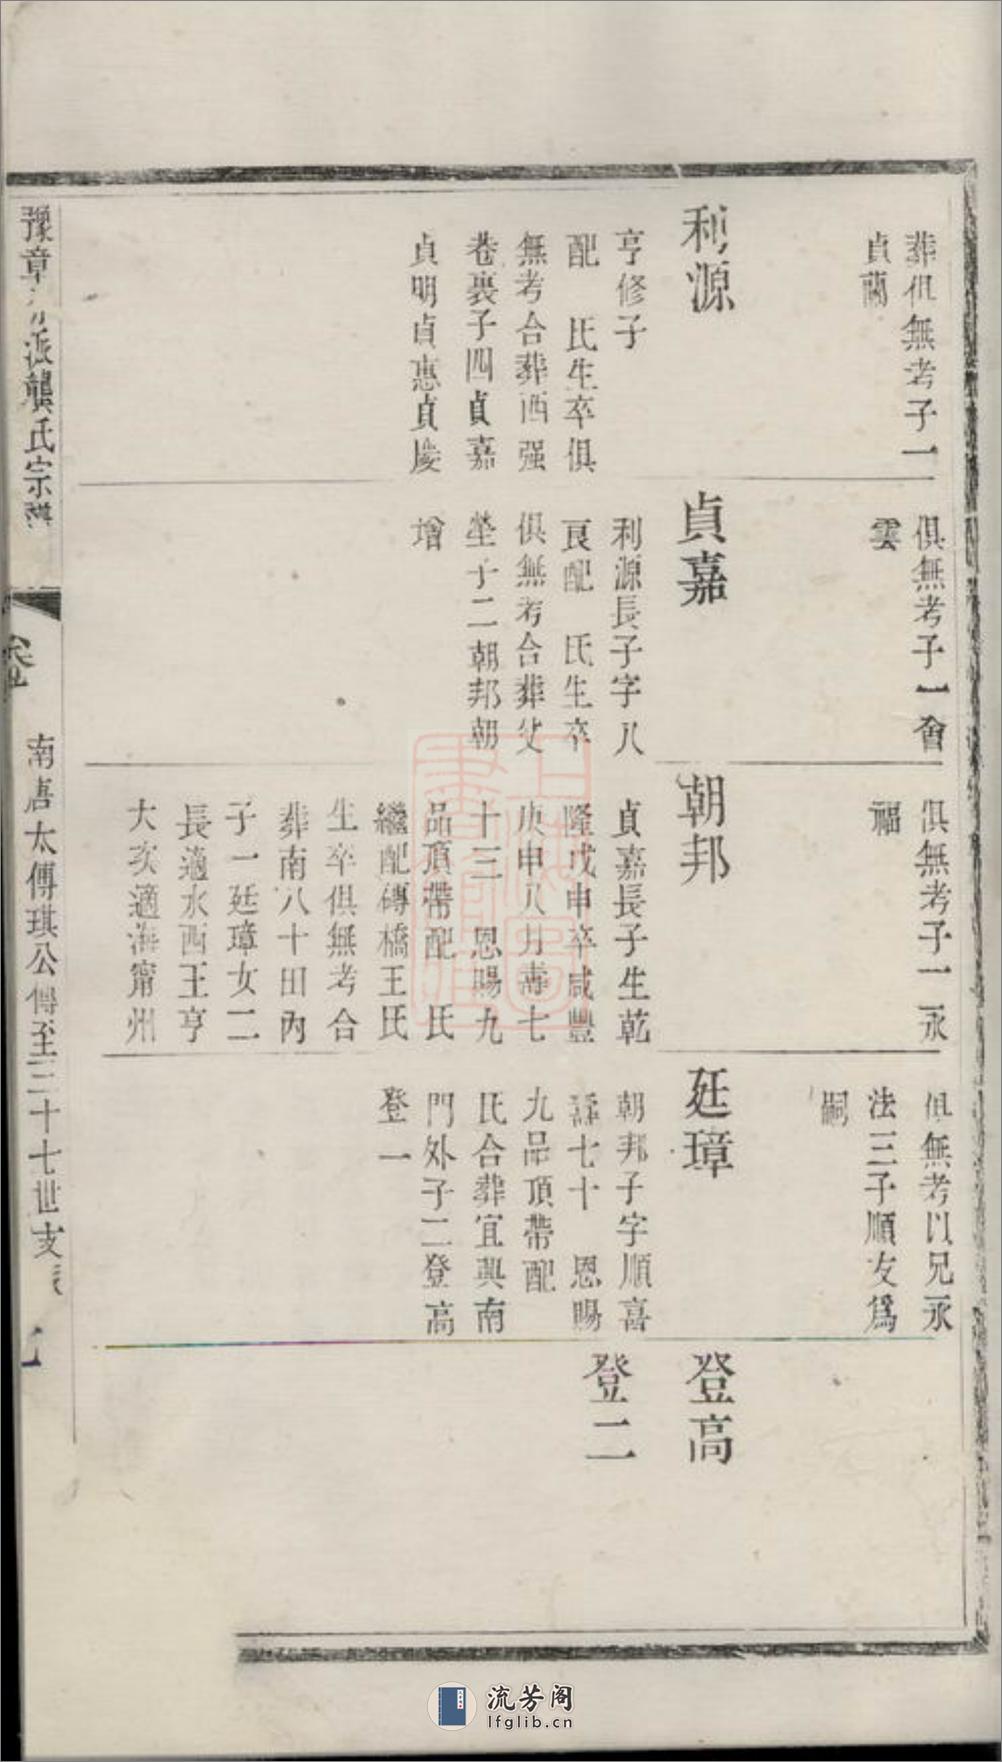 葬俱無考子一
貞蘭
利源
亨修子
配　氏生卒俱
無考合葬西强
巷裏子四貞嘉
貞明貞惠貞慶
俱無考子一會
雲
貞嘉
利源長子字八
良配　氏生卒
俱無考合葬父
塋子二朝邦朝
增
俱無考子一永
福
朝邦
貞嘉長子生乾
隆戊申卒咸豐
庚申八月壽七
十三　恩賜九
品頂帶配　氏
繼配磚橋王氏
生卒俱無考合
葬南八十田內
子一廷璋女二
長適水西王亨
大次適海甯州
俱無考以兄永
法三子順友爲
嗣
廷璋
朝邦子字順喜
壽七十　恩賜
九品頂帶配
氏合葬宜興南
門外子二登高
登一
登高
登二
豫章 派龔氏宗譜
卷
南唐太傅琪公傳至三十七世支
流芳阁
lfglib.cn